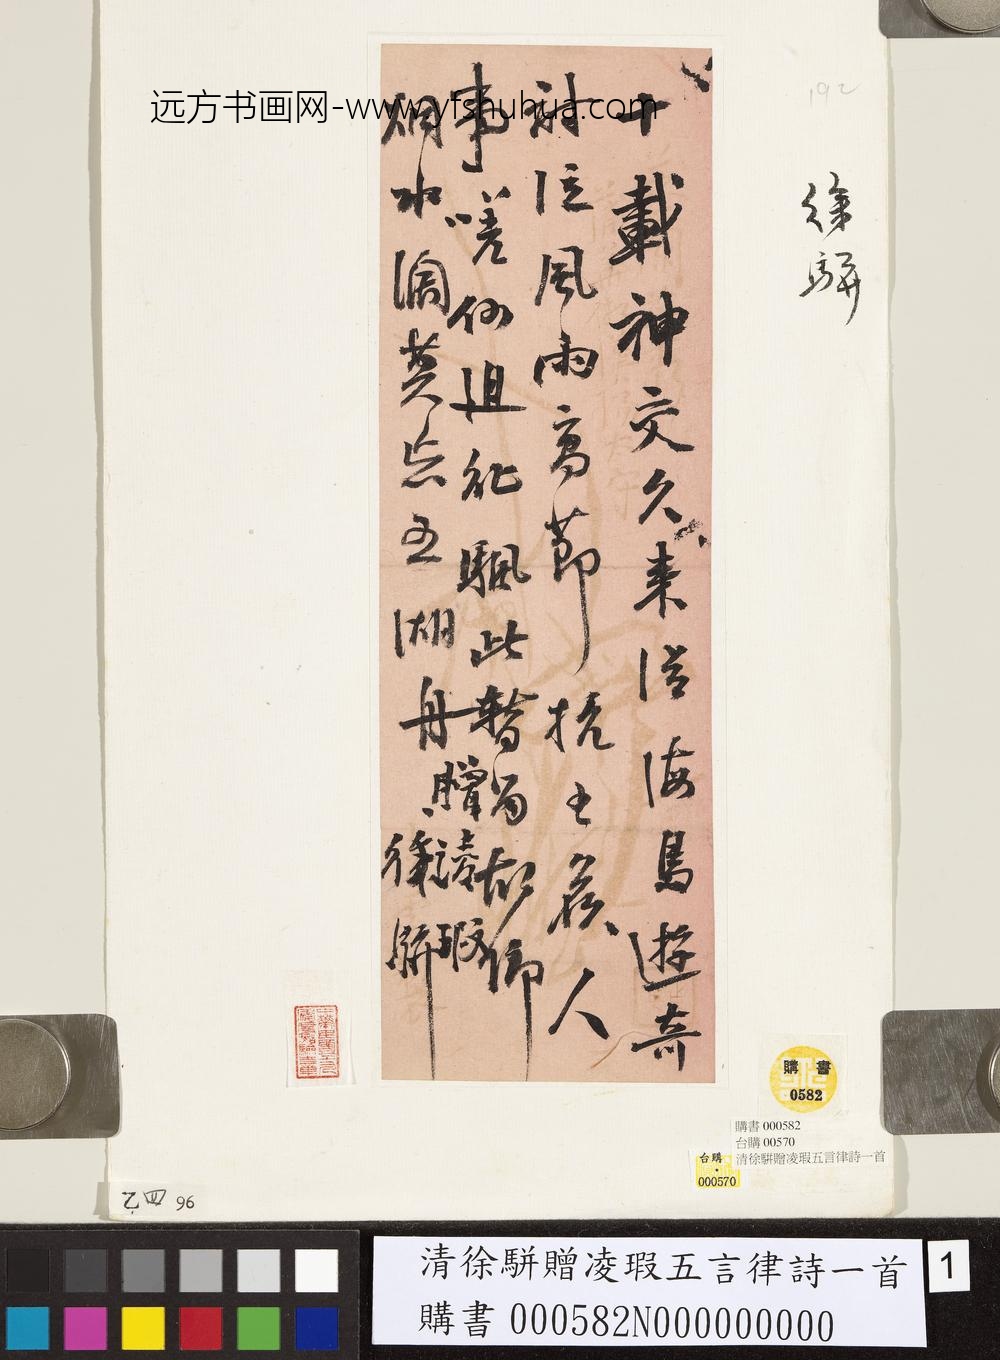 远方书画网-www.yfshuhua.com
192
徐駢
十載神交久来從海島遊奇
泣風雨高節抗王侯人
事嗟颿此暫留故鄉
烟水闊莫忘五湖舟
贈凌瑕
徐駢
購書
0582
購書 000582
台購 00570
清徐駢贈凌瑕五言律詩一首
台購
000570
乙四 96
清徐駢贈凌瑕五言律詩一首
購書 000582N000000000
1